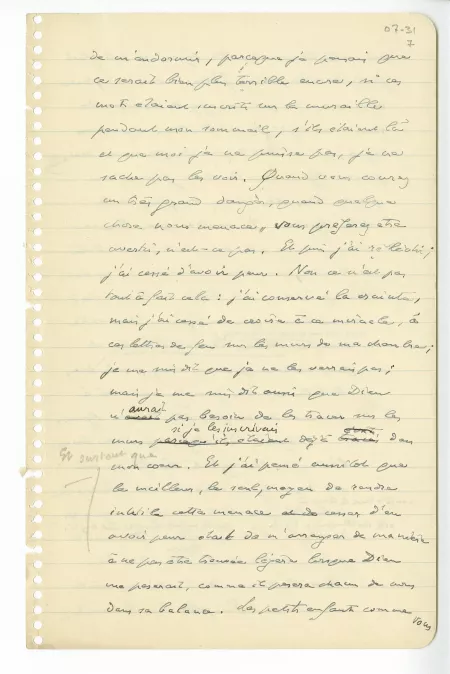 07-31
7
de m'endormir, parceque je pensais que
ce serait bien plus terrible encore, si ces
mots étaient inscrits sur la muraille
pendant mon sommeil, s'ils étaient là
et que moi je ne puisse pas, je ne
sache pas les voir. Quand vous courez
un très grand danger, quand quelque
chose vous menace, vous préférez être
averti, n'est-ce pas. Et puis j'ai réfléchi ;
j'ai cessé d'avoir peur. Non ce n'est pas
tout à fait cela : j'ai conservé la crainte,
mais j'ai cessé de croire à ce miracle, à
ces lettres de feu sur les murs de ma chambre ;
je me suis dit que je ne les verrais pas ;
mais je me suis dit aussi que Dieu
n'aurait pas besoin de les tracer sur les
murs si je les inscrivais déjà dans
Et surtout que
mon coeur. Et j'ai pensé aussitôt que
le meilleur, le seul, moyen de rendre
inutile cette menace et de cesser d'en
avoir peur était de m'arranger de manière
à ne pas être trouvée légère lorsque Dieu
me peserait, comme il pesera chacun de nous
dans sa balance. Les petits enfants comme
vous